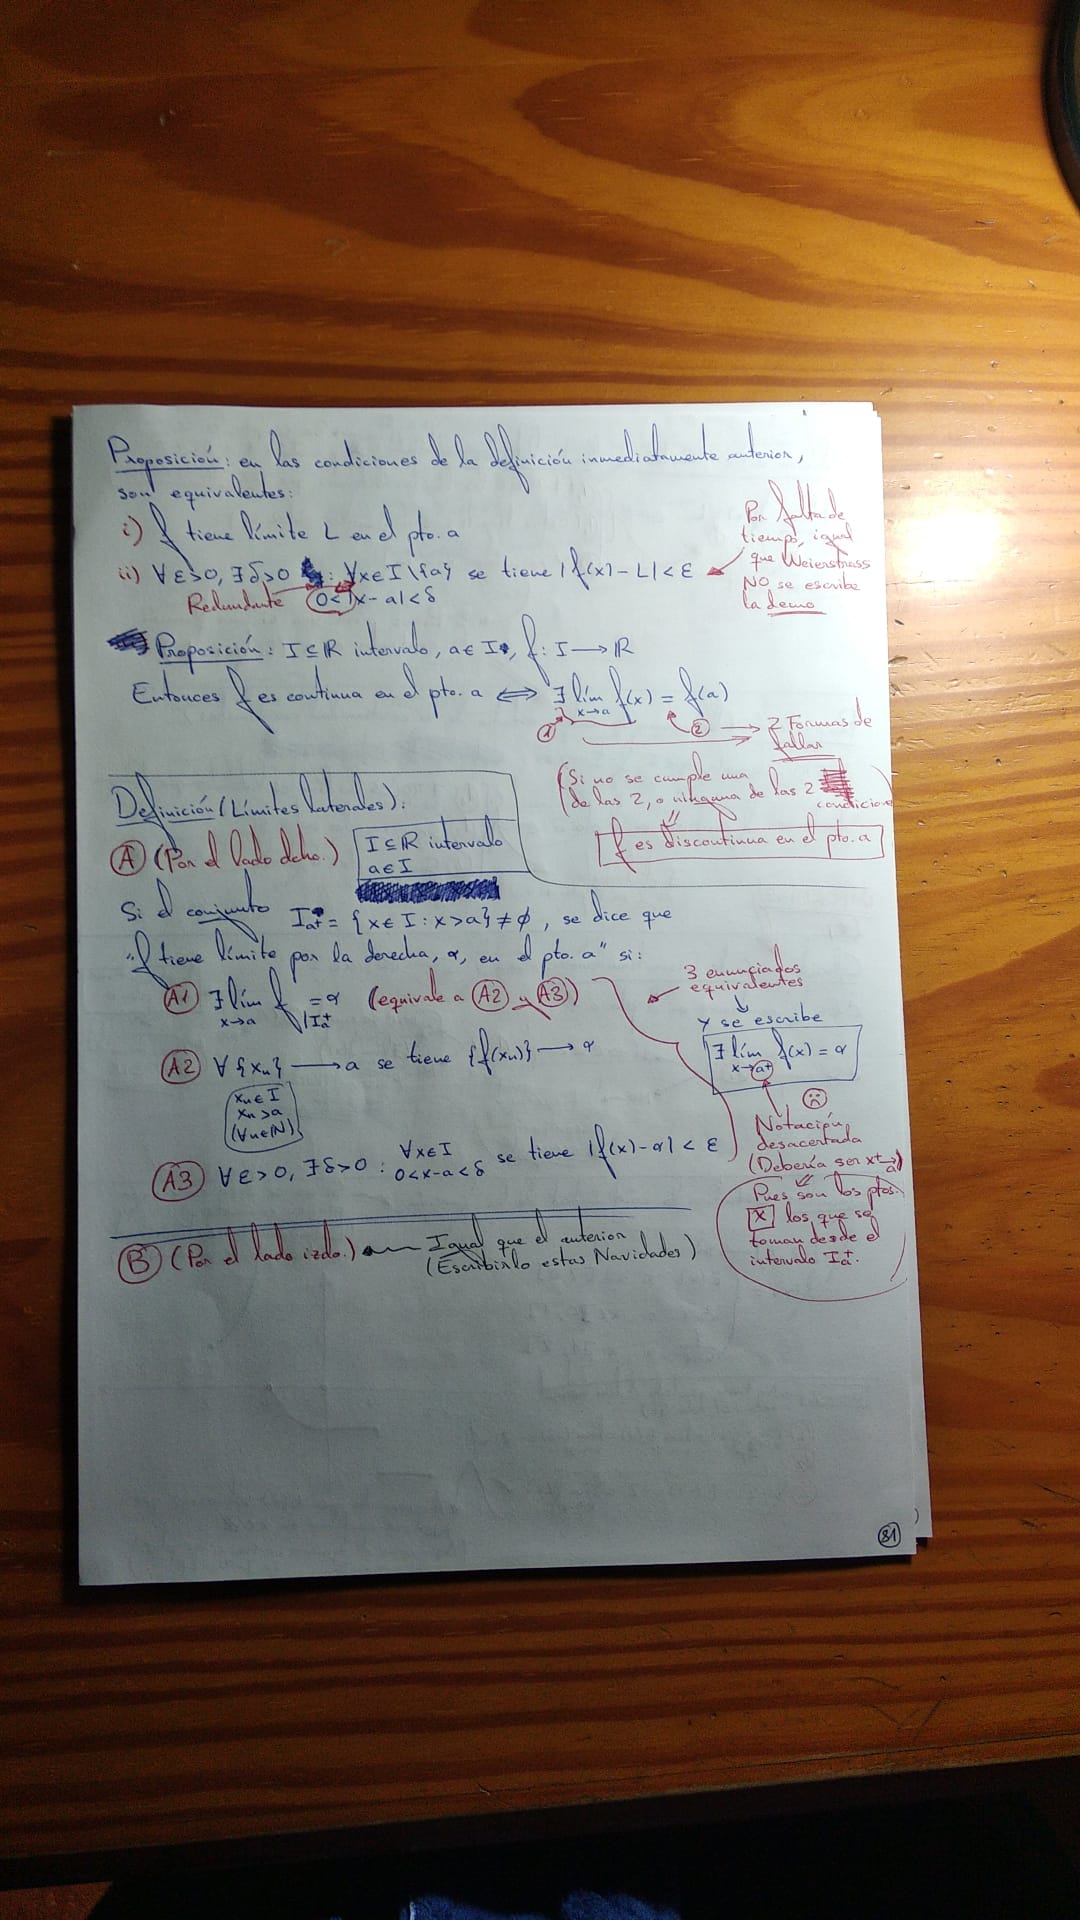 Proposición: en las condiciones de la definición inmediatamente anterior,
son equivalentes:
i) f tiene límite L en el pto. a
ii) ∀ε>0, ∃δ>0 : ∀x∈I\{a} se tiene |f(x)-L|<ε
0<|x-a|<δ
Redundante
Por falta de
tiempo, igual
que Weierstrass
NO se escribe
la demo
Proposición: I⊆ℝ intervalo, a∈I, f: I→ℝ
Entonces f es continua en el pto. a ⟺ ∃ lím f(x) = f(a)
x→a
1
2 → 2 Formas de
fallar
(Si no se cumple una
de las 2, o ninguna de las 2
condiciones)
f es discontinua en el pto. a
Definición (Límites laterales):
A (Por el lado dcho.)
I⊆ℝ intervalo
a∈I
Si el conjunto Ia+ = {x∈I: x>a} ≠ ∅, se dice que
"f tiene límite por la derecha, α, en el pto. a" si:
A1 ∃ lím f = α (equivale a A2 y A3)
x→a |Ia+
3 enunciados
equivalentes
y se escribe
∃ lím f(x) = α
x→a+
A2 ∀{xn} → a se tiene {f(xn)} → α
xn∈I
xn>a
(∀n∈ℕ)
A3 ∀ε>0, ∃δ>0 : ∀x∈I se tiene |f(x)-α|<ε
0<x-a<δ
Notación
desacertada
(Debería ser x+→a)
Pues son los ptos.
x los que se
toman desde el
intervalo Ia+.
B (Por el lado izdo.) Igual que el anterior
(Escribirlo estas Navidades)
81